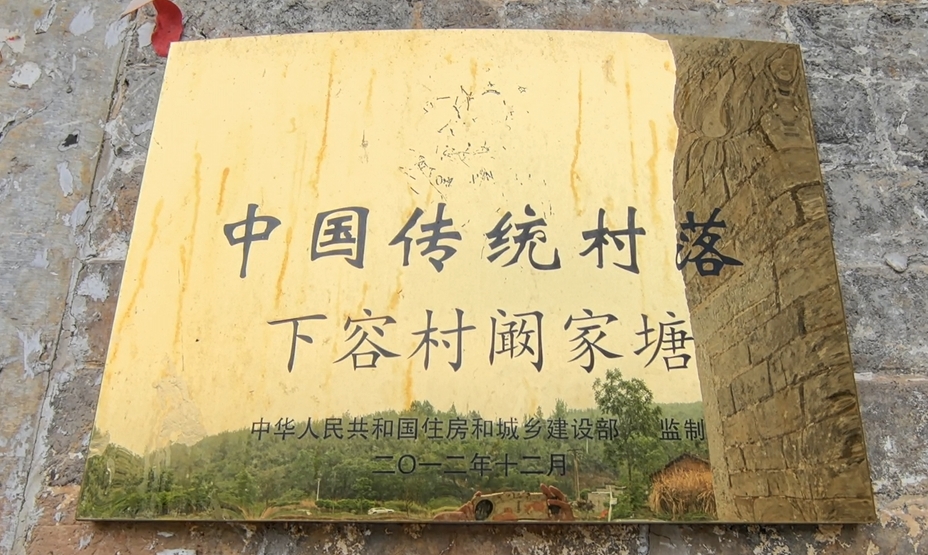 中国传统村落
下容村阚家塘
中华人民共和国住房和城乡建设部 监制
二〇一二年十二月